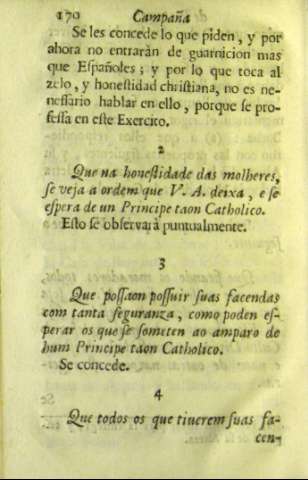 170 Campaña
Se les concede lo que piden, y por
ahora no entraràn de guarnicion mas
que Españoles; y por lo que toca al
zelo, y honestidad christiana, no es ne-
nessario hablar en ello, porque se pro-
fessa en este Exercito.
2
Que na honestidade das molheres,
se veja a ordem que V. A. deixa, e se
espera de un Principe taon Catholico.
Esto se observarà puntualmente.
3
Que possaon possuir suas facendas
com tanta seguranza, como poden es-
perar os que se someten ao amparo de
hum Principe taon Catholico.
Se concede.
4
Que todos os que tiverem suas fa-
cen-